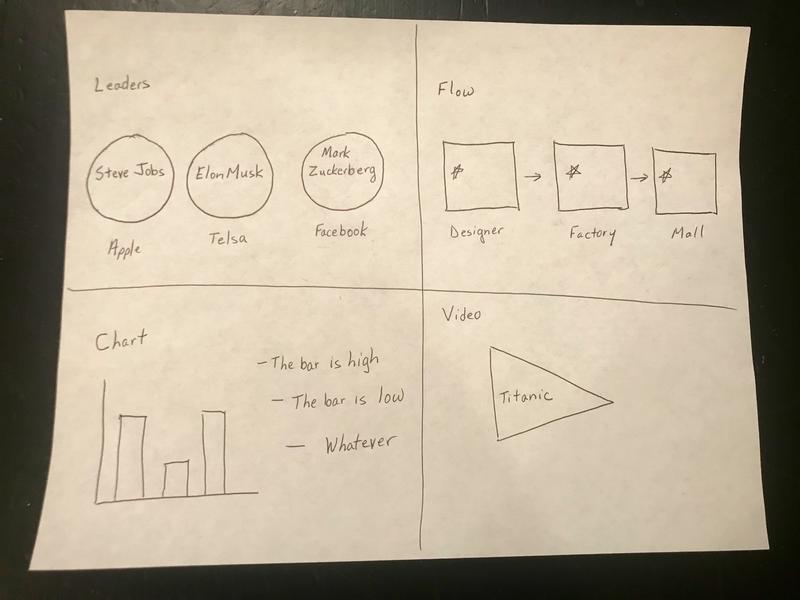 Leaders
Steve Jobs
Elon Musk
Mark
Zuckerberg
Apple
Telsa
Facebook
Flow
Designer
Factory
Mall
Chart
- The bar is high
- The bar is low
- Whatever
Video
Titanic